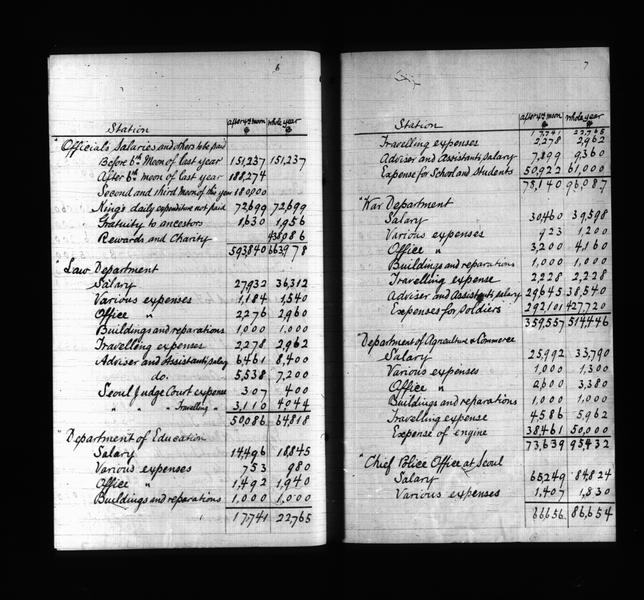 6
Station after 4th moon $ whole year $
"Officials Salaries and others to be paid
Before 6th Moon of last year 151,237 151,237
After 6th moon of last year 188,274
Second and third moon of this year 180,000
King's daily expenditure not paid 72,699 72,699
Gratuity to ancestors 1,630 1,956
Rewards and Charity 438,086
593,840 663,978
"Law Department
Salary 27,932 36,312
Various expenses 1,184 1,540
Office " 2,276 2,960
Buildings and reparations 1,000 1,000
Travelling expenses 2,278 2,962
Adviser and Assistant, salary 6,461 8,400
do. 5,538 7,200
Seoul Judge Court expense 307 400
" " " " Travelling " 3,110 4,044
50,086 64,818
"Department of Education
Salary 14,496 18,845
Various expenses 753 980
Office " 1,492 1,940
Buildings and reparations 1,000 1,000
17,741 22,765
7
Station after 4th moon $ whole year $
17,741 22,765
Travelling expenses 2,278 2,962
Adviser and Assistants, salary 7,899 9,360
Expense for School and Students 50,922 61,000
78,140 96,087
"War Department
Salary 30,460 39,598
Various expenses 923 1,200
Office " 3,200 4,160
Buildings and reparations 1,000 1,000
Travelling expense 2,228 2,228
Adviser and Assistants, salary 29,645 38,540
Expenses for Soldiers 292,101 427,720
359,557 514,446
"Department of Agriculture & Commerce
Salary 25,992 33,790
Various expenses 1,000 1,300
Office " 2,600 3,380
Buildings and reparations 1,000 1,000
Travelling expense 4,586 5,962
Expense of engine 38,461 50,000
73,639 95,432
"Chief Police Office at Seoul
Salary 65,249 84,824
Various expenses 1,407 1,830
66,656 86,654